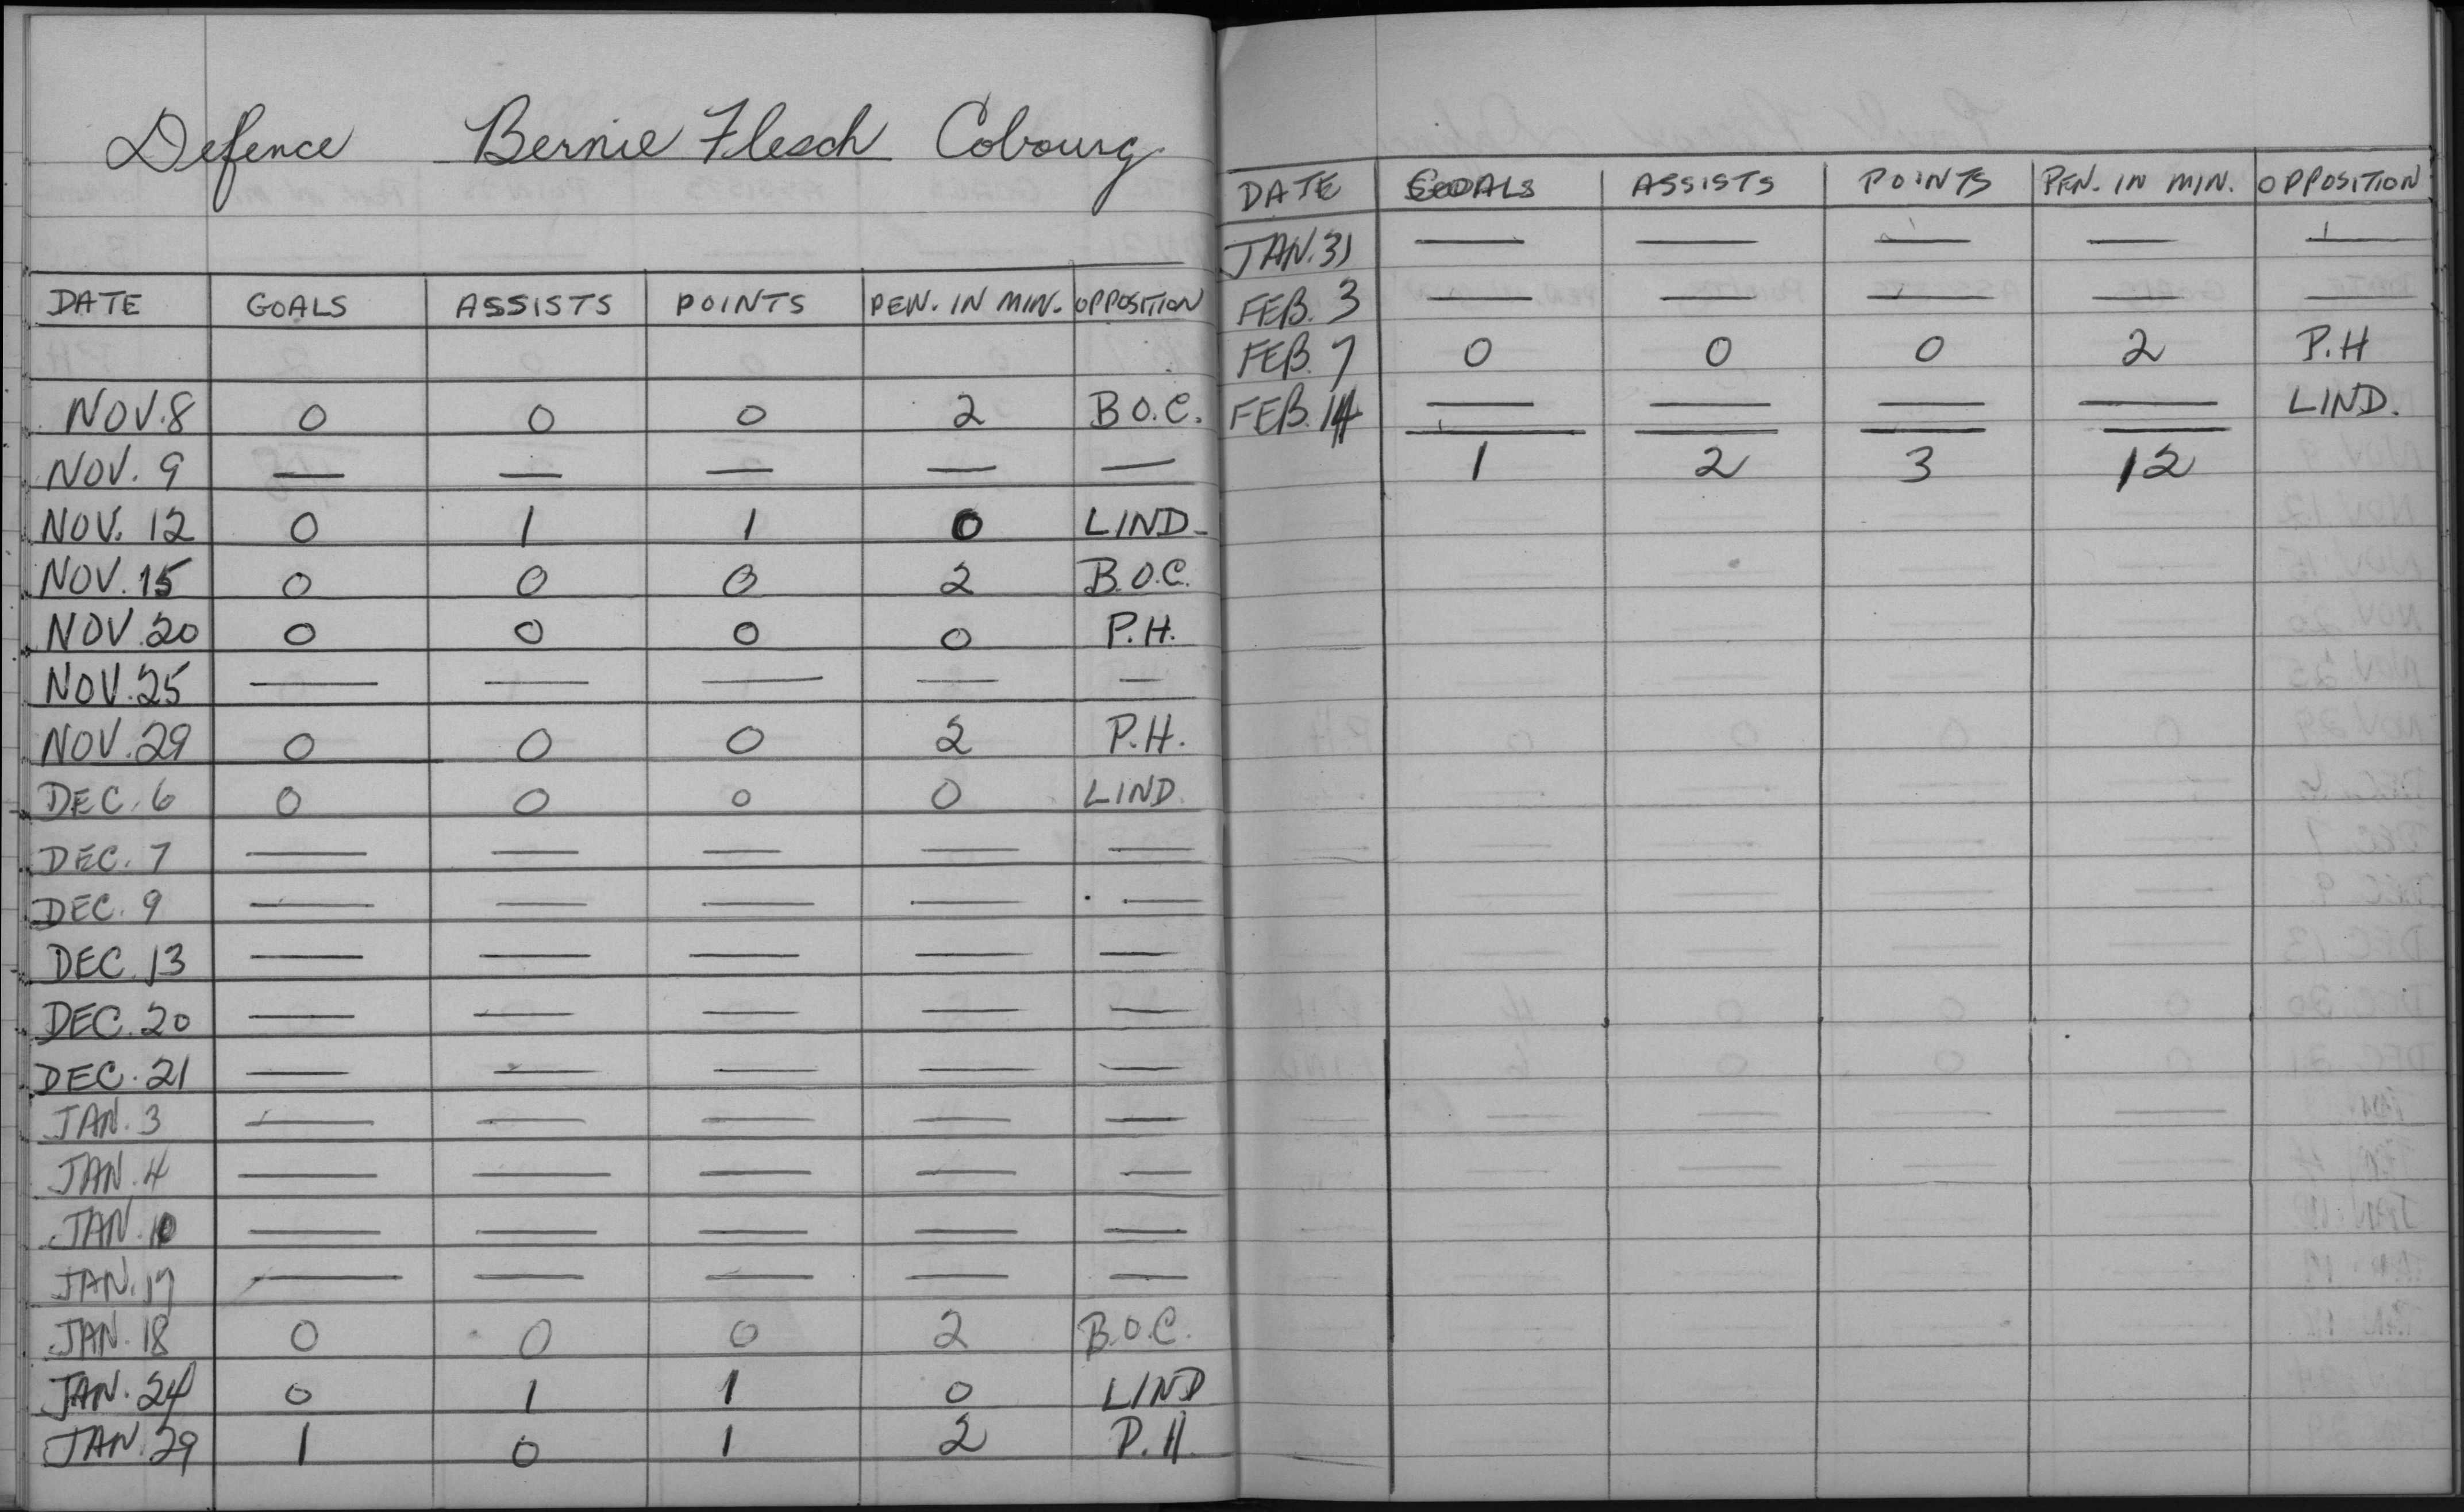 Defence Bernie Flesch Cobourg
DATE GOALS ASSISTS POINTS PEN. IN MIN. OPPOSITION
NOV. 8 0 0 0 2 B.O.C.
NOV. 9 — — — — —
NOV. 12 0 1 1 0 LIND.
NOV. 15 0 0 0 2 B.O.C.
NOV. 20 0 0 0 0 P.H.
NOV. 25 — — — — —
NOV. 29 0 0 0 2 P.H.
DEC. 6 0 0 0 0 LIND.
DEC. 7 — — — — —
DEC. 9 — — — — —
DEC. 13 — — — — —
DEC. 20 — — — — —
DEC. 21 — — — — —
JAN. 3 — — — — —
JAN. 4 — — — — —
JAN. 10 — — — — —
JAN. 17 — — — — —
JAN. 18 0 0 0 2 B.O.C.
JAN. 24 0 1 1 0 LIND
JAN. 29 1 0 1 2 P.H.
DATE GOALS ASSISTS POINTS PEN. IN MIN. OPPOSITION
JAN. 31 — — — — —
FEB. 3 — — — — —
FEB. 7 0 0 0 2 P.H
FEB. 14 — — — — LIND.
1 2 3 12